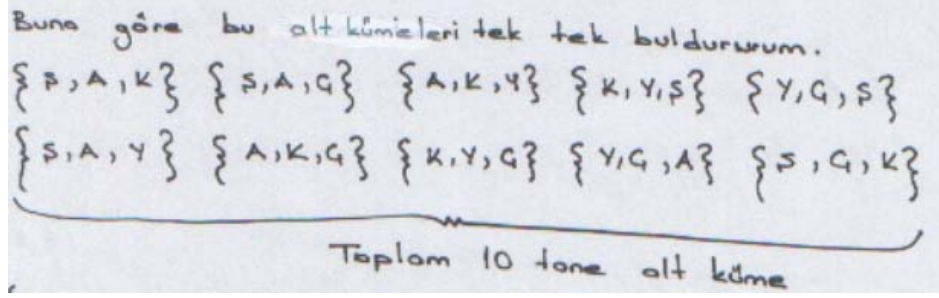 Buna göre bu alt kümeleri tek tek buldururum.
{S,A,K} {S,A,G} {A,K,Y} {K,Y,S} {Y,G,S}
{S,A,Y} {A,K,G} {K,Y,G} {Y,G,A} {S,G,K}
Toplam 10 tane alt küme